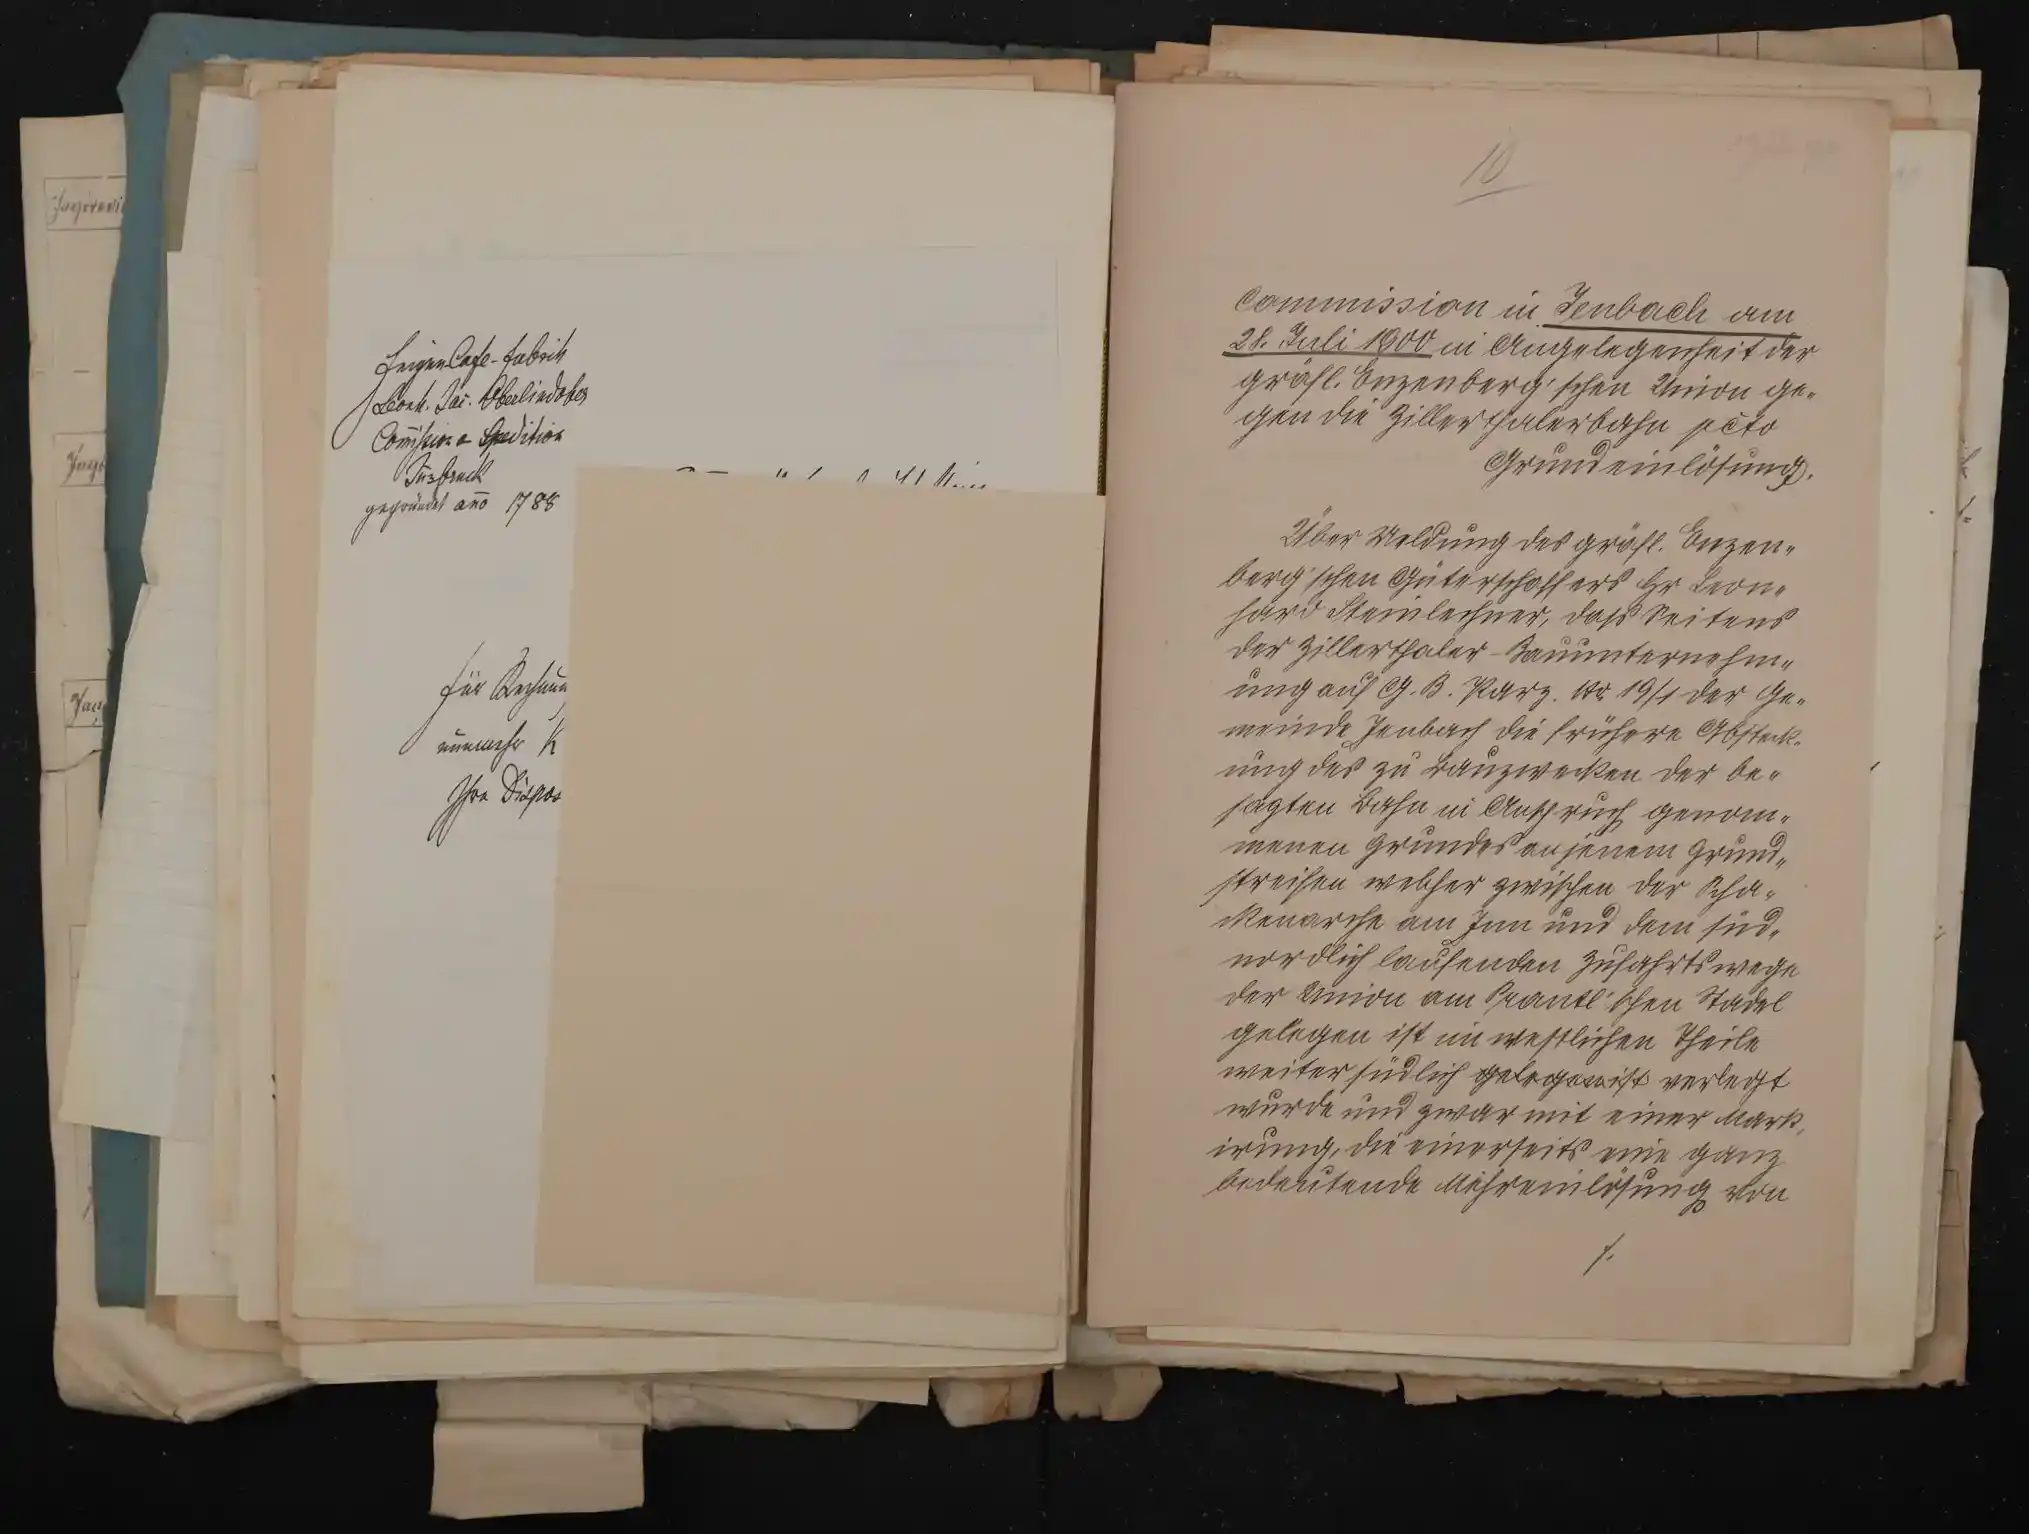 Feigen Cafe-Fabrik
Leonh. Jac. Oberlindober
Comission & Spedition
Innsbruck
gegründet anno 1788
für Rechnung
nunmehr K
Ihre Dispos
10
Commission in Jenbach am
28. Juli 1900 in Angelegenheit der
gräfl. Enzenberg'schen Union ge-
gen die Zillerthalerbahn pcto
Grundeinlösung.
Über Meldung des gräfl. Enzen-
berg'schen Güterschaffers Hr Leon-
hard Steinlechner, dass Seitens
der Zillerthaler-Bauunternehm-
ung auf G. B. Parz. Nr 19/1 der Ge-
meinde Jenbach die frühere Absteck-
ung des zu Bauzwecken der be-
sagten Bahn in Anspruch genom-
menen Grundes an jenem Grund-
streifen welcher zwischen der Scha-
ckenarche am Inn und dem süd-
nordlich laufenden Zufahrtswege
der Union am Prantl'schen Stadel
gelegen ist im westlichen Theile
weiter südlich gelegen ist verlegt
wurde und zwar mit einer Mark-
irung, die einerseits eine ganz
bedeutende Mehreinlösung von
/.